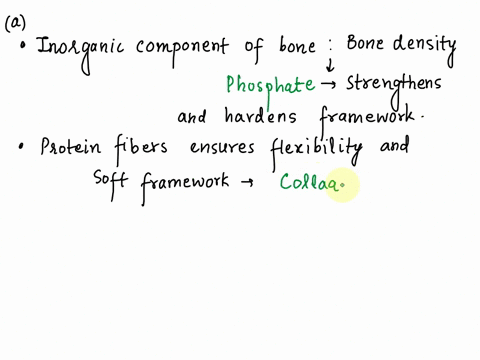 (a)
• Inorganic component of bone : Bone density
↓
Phosphate → Strengthens
and hardens framework.
• Protein fibers ensures flexibility and
Soft framework → Collag